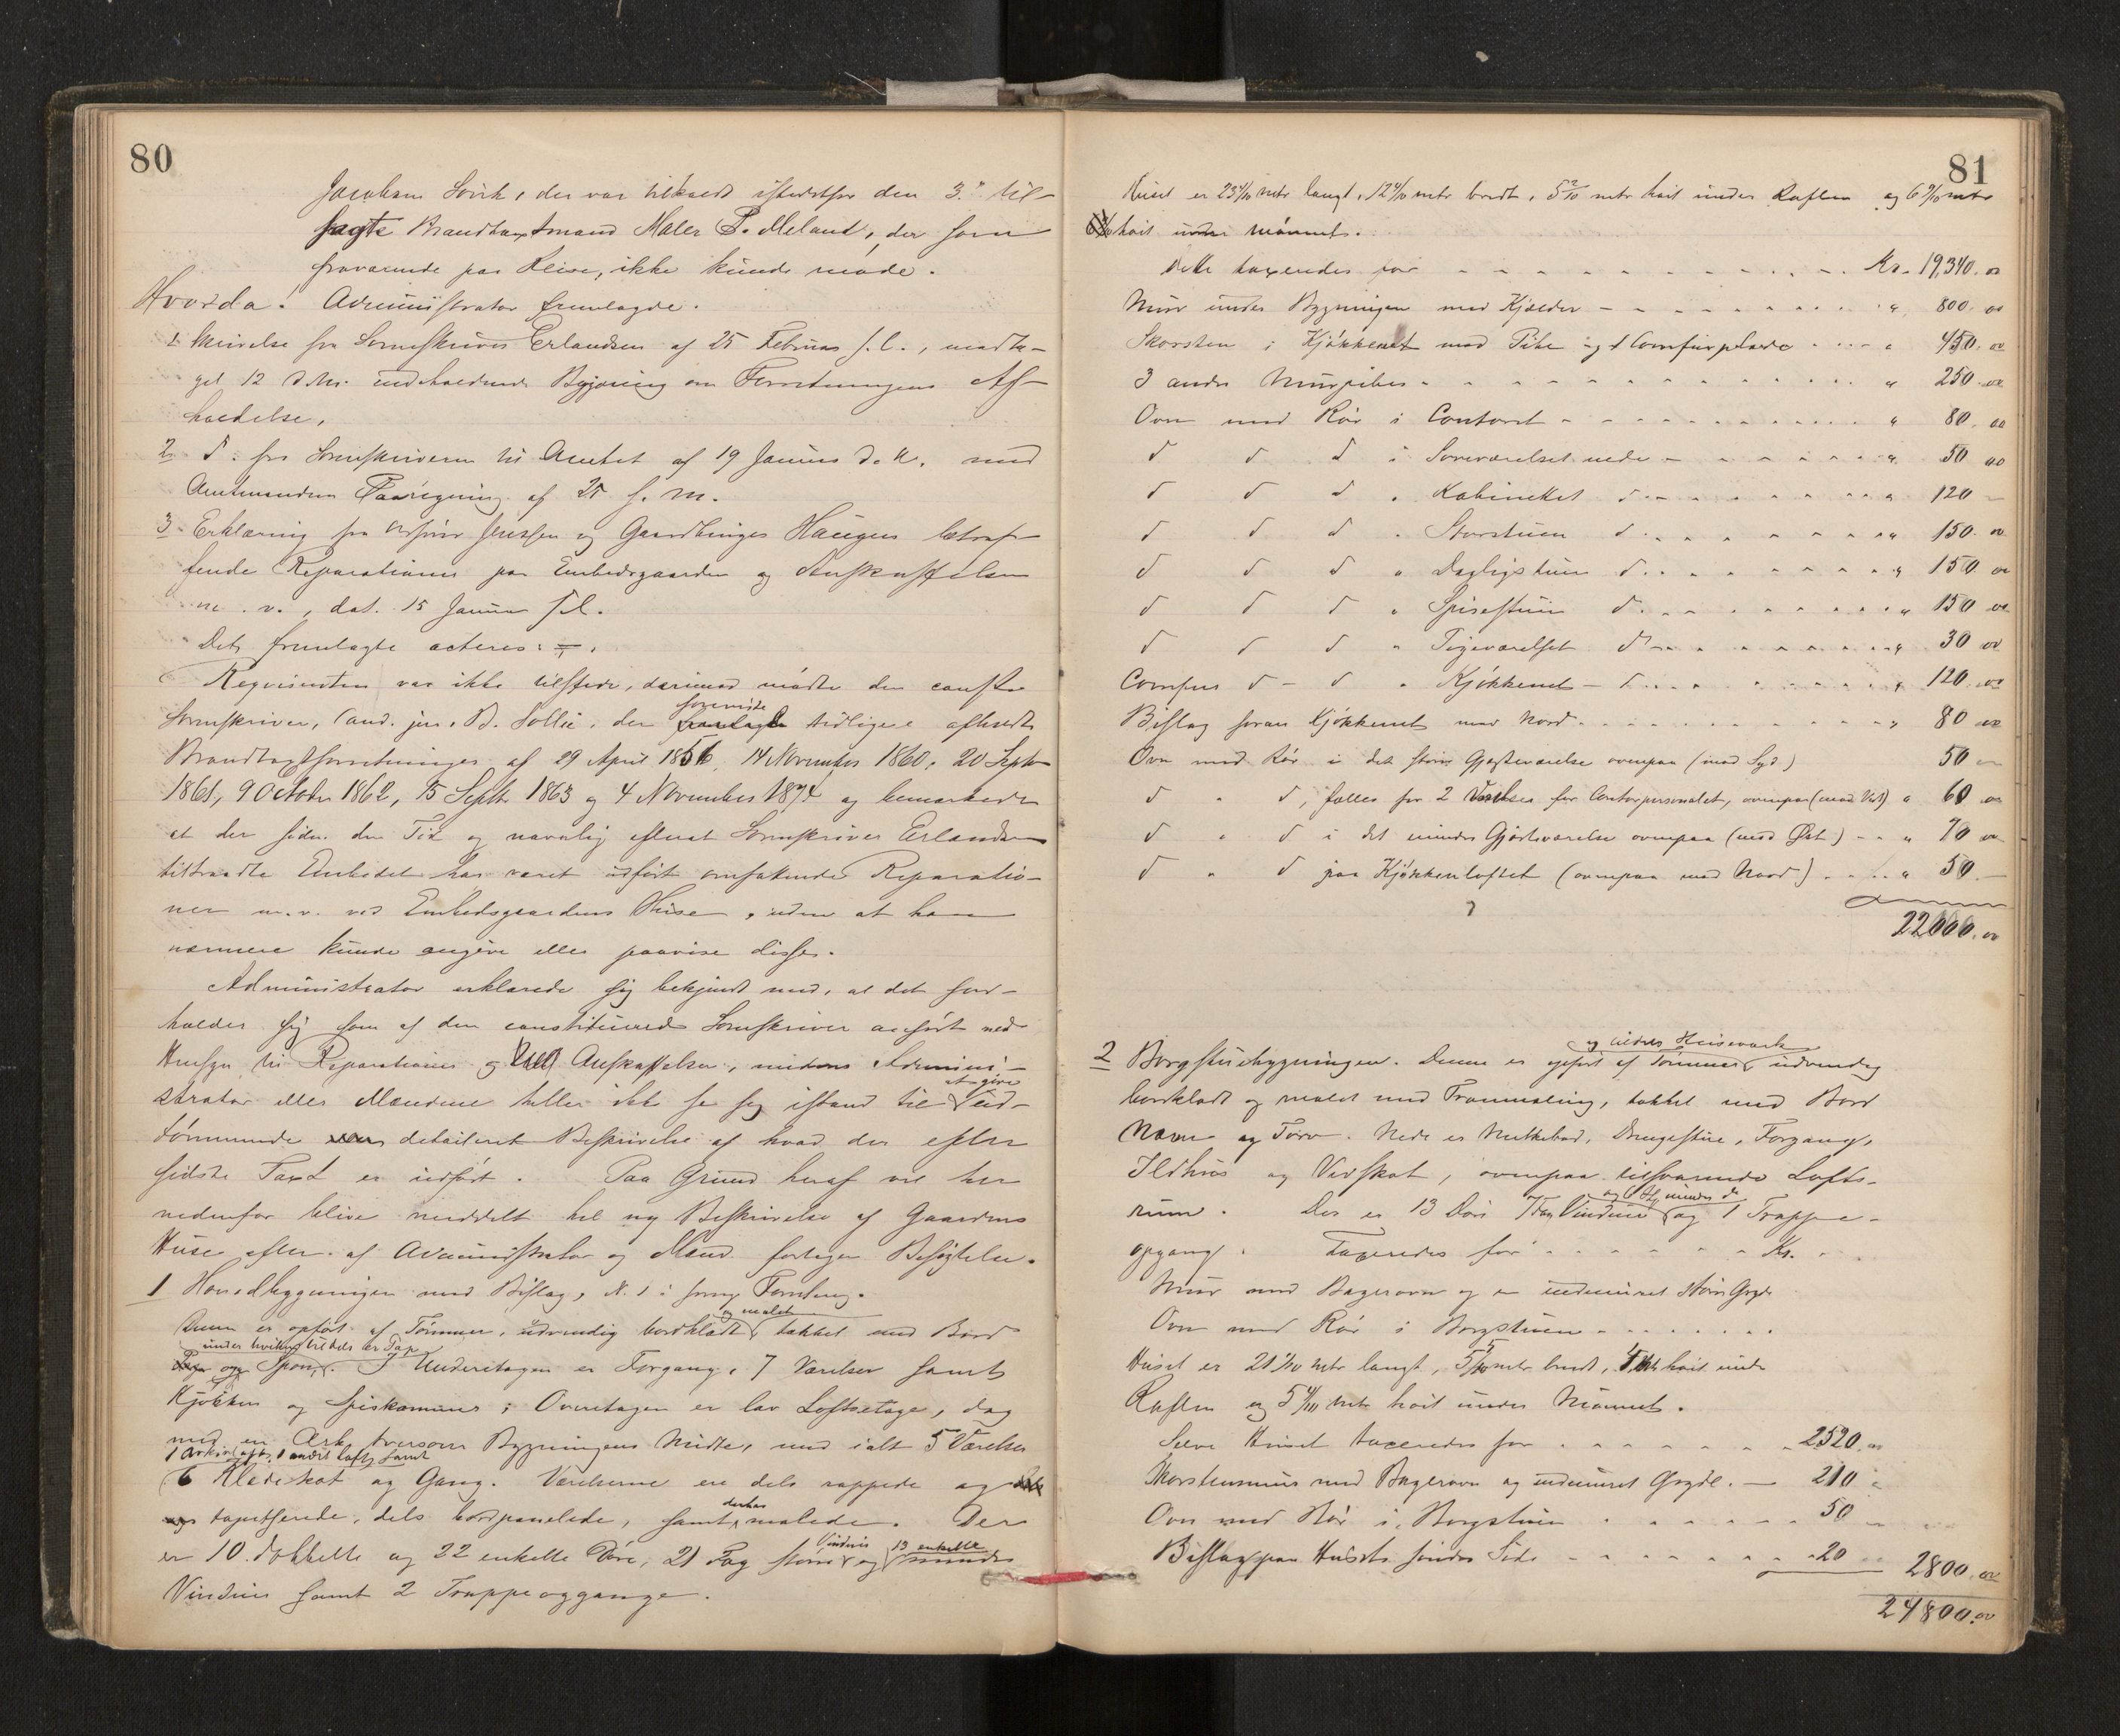 80
Jacobsen Sorik, der var tilkaldt istedetfor den 3. til-
sagte Brandtaxtmand Maler P. Meland, der som
fraværende paa Reise, ikke kunde møde.
Hvorda! Administrator fremlagde.
1 Skrivelse fra Sorenskriver Erlandsen af 25 Februar f. l., modta-
get 12 d. M. indeholdende Begjæring om Forretningens Af-
holdelse.
2. d. fra Sorenskriveren til Amtet af 19 Januar d. A. med
Amtmandens Paategning af 25 f. M.
3 Erklæring fra Jenssen og Gaardbruger Haugen betræf-
fende Reparationer paa Embedsgaarden og Anskaffelsen
m. v., dat. 15 Januar f. l.
Det fremlagte acteres:
Reqvirenten var ikke tilstede, derimod mødte den const.
Sorenskriver, Cand. jur. B. Sollie, der foreviste tidligere afholdte
Brandtaxtforretninger af 29 April 1856, 14 November 1860, 20 Septbr
1861, 9 October 1862, 15 Septbr 1863 og 4 November 1874 og bemærkede
at der siden den Tid og navnlig efterat Sorenskriver Erlandsen
tiltraadte Embedet har været udført omfattende Reparatio-
ner m. v. ved Embedsgaardens Huse, uden at han
nærmere kunde angive eller paavise disse.
Administrator erklærede sig bekjendt med, at det for-
holder sig som af den constituerede Sorenskriver anført med
Hensyn til Reparationer og Anskaffelser, medens Admini-
strator eller Mændene heller ikke se sig istand til at give ud-
tømmende detailleret Beskrivelse af hvad der efter
sidste Taxt er udført. Paa Grund heraf vil her
nedenfor blive meddelt hel ny Beskrivelse af Gaardens
Huse efter af Administrator og Mænd foretagen Besigtelse.
1 Hovedbygningen med Bislag, N. 1 i forrige Forretning.
og malet
Denne er opført af Tømmer, udvendig bordklædt, takket med Bord
under hvilke tildels er Tag
Spon. I Underetagen er Forgang, 7 Værelser samt
Kjøkken og Spiskammer; Overetagen er lav Loftsetage, dog
med en Ark tversover Bygningens Midte, med ialt 5 Værelser
1 Arkivloft, 1 andet Loft samt
6 Klædeskot og Gang. Værelserne ere dels rappede og
tapetserede, dels bordpanelede, samt derhos malede. Der
er 10 dobbelte og 22 enkelte Døre, 21 Fag større Vinduer og 13 enkelte mindre
Vinduer samt 2 Trappeopgange.
81
Huset er 23 4/10 mtr langt, 12 4/10 mtr bredt, 5 2/10 mtr høit under Raften og 6 9/10 mtr
høit under Mønnet.
Dette taxeredes for Kr. 19,340. 00
Mur under Bygningen med Kjælder " 800. 00
Skorsten i Kjøkkenet med Pibe og 1 Comfurplade " 450. 00
3 andre Murpiber " 250. 00
Ovn med Rør i Contoret " 80. 00
d d d i Soveværelset nede " 50 00
d d d " Kabinettet d " 120 -
d d d " Storstuen d " 150. 00
d d d " Dagligstuen d " 150 00
d d d " Spisestuen d " 150 00
d d d " Pigeværelset d " 30 00
Comfur d - d " Kjøkkenet - d " 120. 00
Bislag foran Kjøkkenet mod Nord " 80 00
Ovn med Rør i det større Gjæsteværelse ovenpaa (mod Syd) 50 -
d " d, fælles for 2 Værelser for Contorpersonalet, ovenpaa (mod Vest) " 60 00
d " d i det mindre Gjæsteværelse ovenpaa (mod Øst) " 70 00
d " d paa Kjøkkenloftet (ovenpaa mod Nord) " 50 -
22000. 00
og tildels Huseværk
2 Borgstuebygningen. Denne er opført af Tømmer, udvendig
bordklædt og malet med Tranmaling, takket med Bord
Næver og Torv. Nede er Melkebod, Drengestue, Forgang,
Ildhus og Vedskot, ovenpaa tilsvarende Lofts-
rum. Der er 13 Døre 7 Fag Vinduer og 6 mindre do og 1 Trappe-
opgang. Taxeredes for Kr.
Mur med Bagerovn og en indmuret større Gryde
Ovn med Rør i Borgstuen
Huset er 21 1/10 mtr langt, mtr bredt, høit under
Raften og 5 4/10 mtr høit under Mønnet.
Selve Huset taxeredes for 2520. 00
Skorstensmur med Bagerovn og indmuret Gryde. — 210 -
Ovn med Rør i Borgstuen 50
Bislag paa Husets søndre Side 20 2800. 00
24800. 00